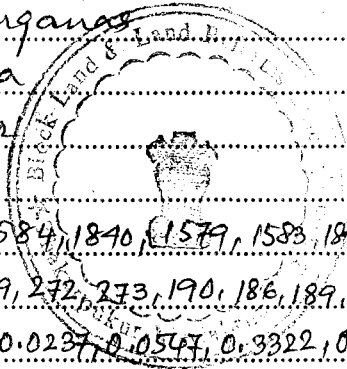 rganas
a
Block Land & Land
584, 1840, 1579, 1583, 18
9, 272, 273, 190, 186, 189,
0.0237, 0.0547, 0.3322, 0